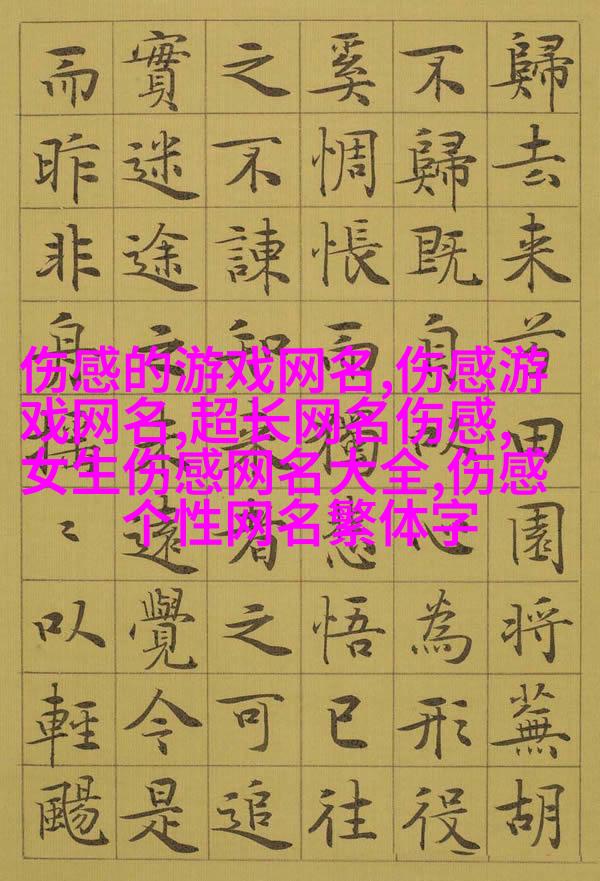 伤感的游戏网名,伤感游
戏网名,超长网名伤感,
女生伤感网名大全,伤感
个性网名繁体字
歸去来田園将蕪胡
不歸既自以心為形役
奚惆悵而獨悲悟已往
之不諫知来者之可追
實迷途未遠覺今是
而昨非舟揺〻以輕颺